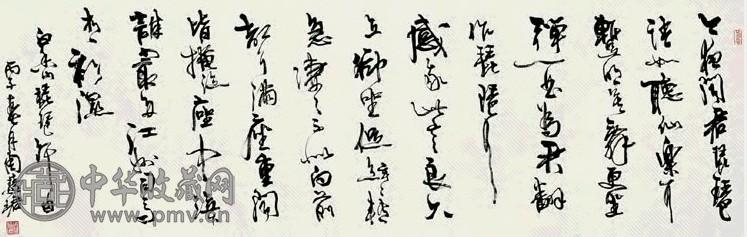 今夜闻君琵琶
语如听仙乐耳
暂明莫辞更坐
弹一曲为君翻
作琵琶行
感我此言良久
立却坐促弦转
急凄凄不似向前
声满座重闻
皆掩泣座中泣
谁最多江州司马
青衫湿
白香山琵琶行
丙子春月
中华收藏网
www.pmv.cn